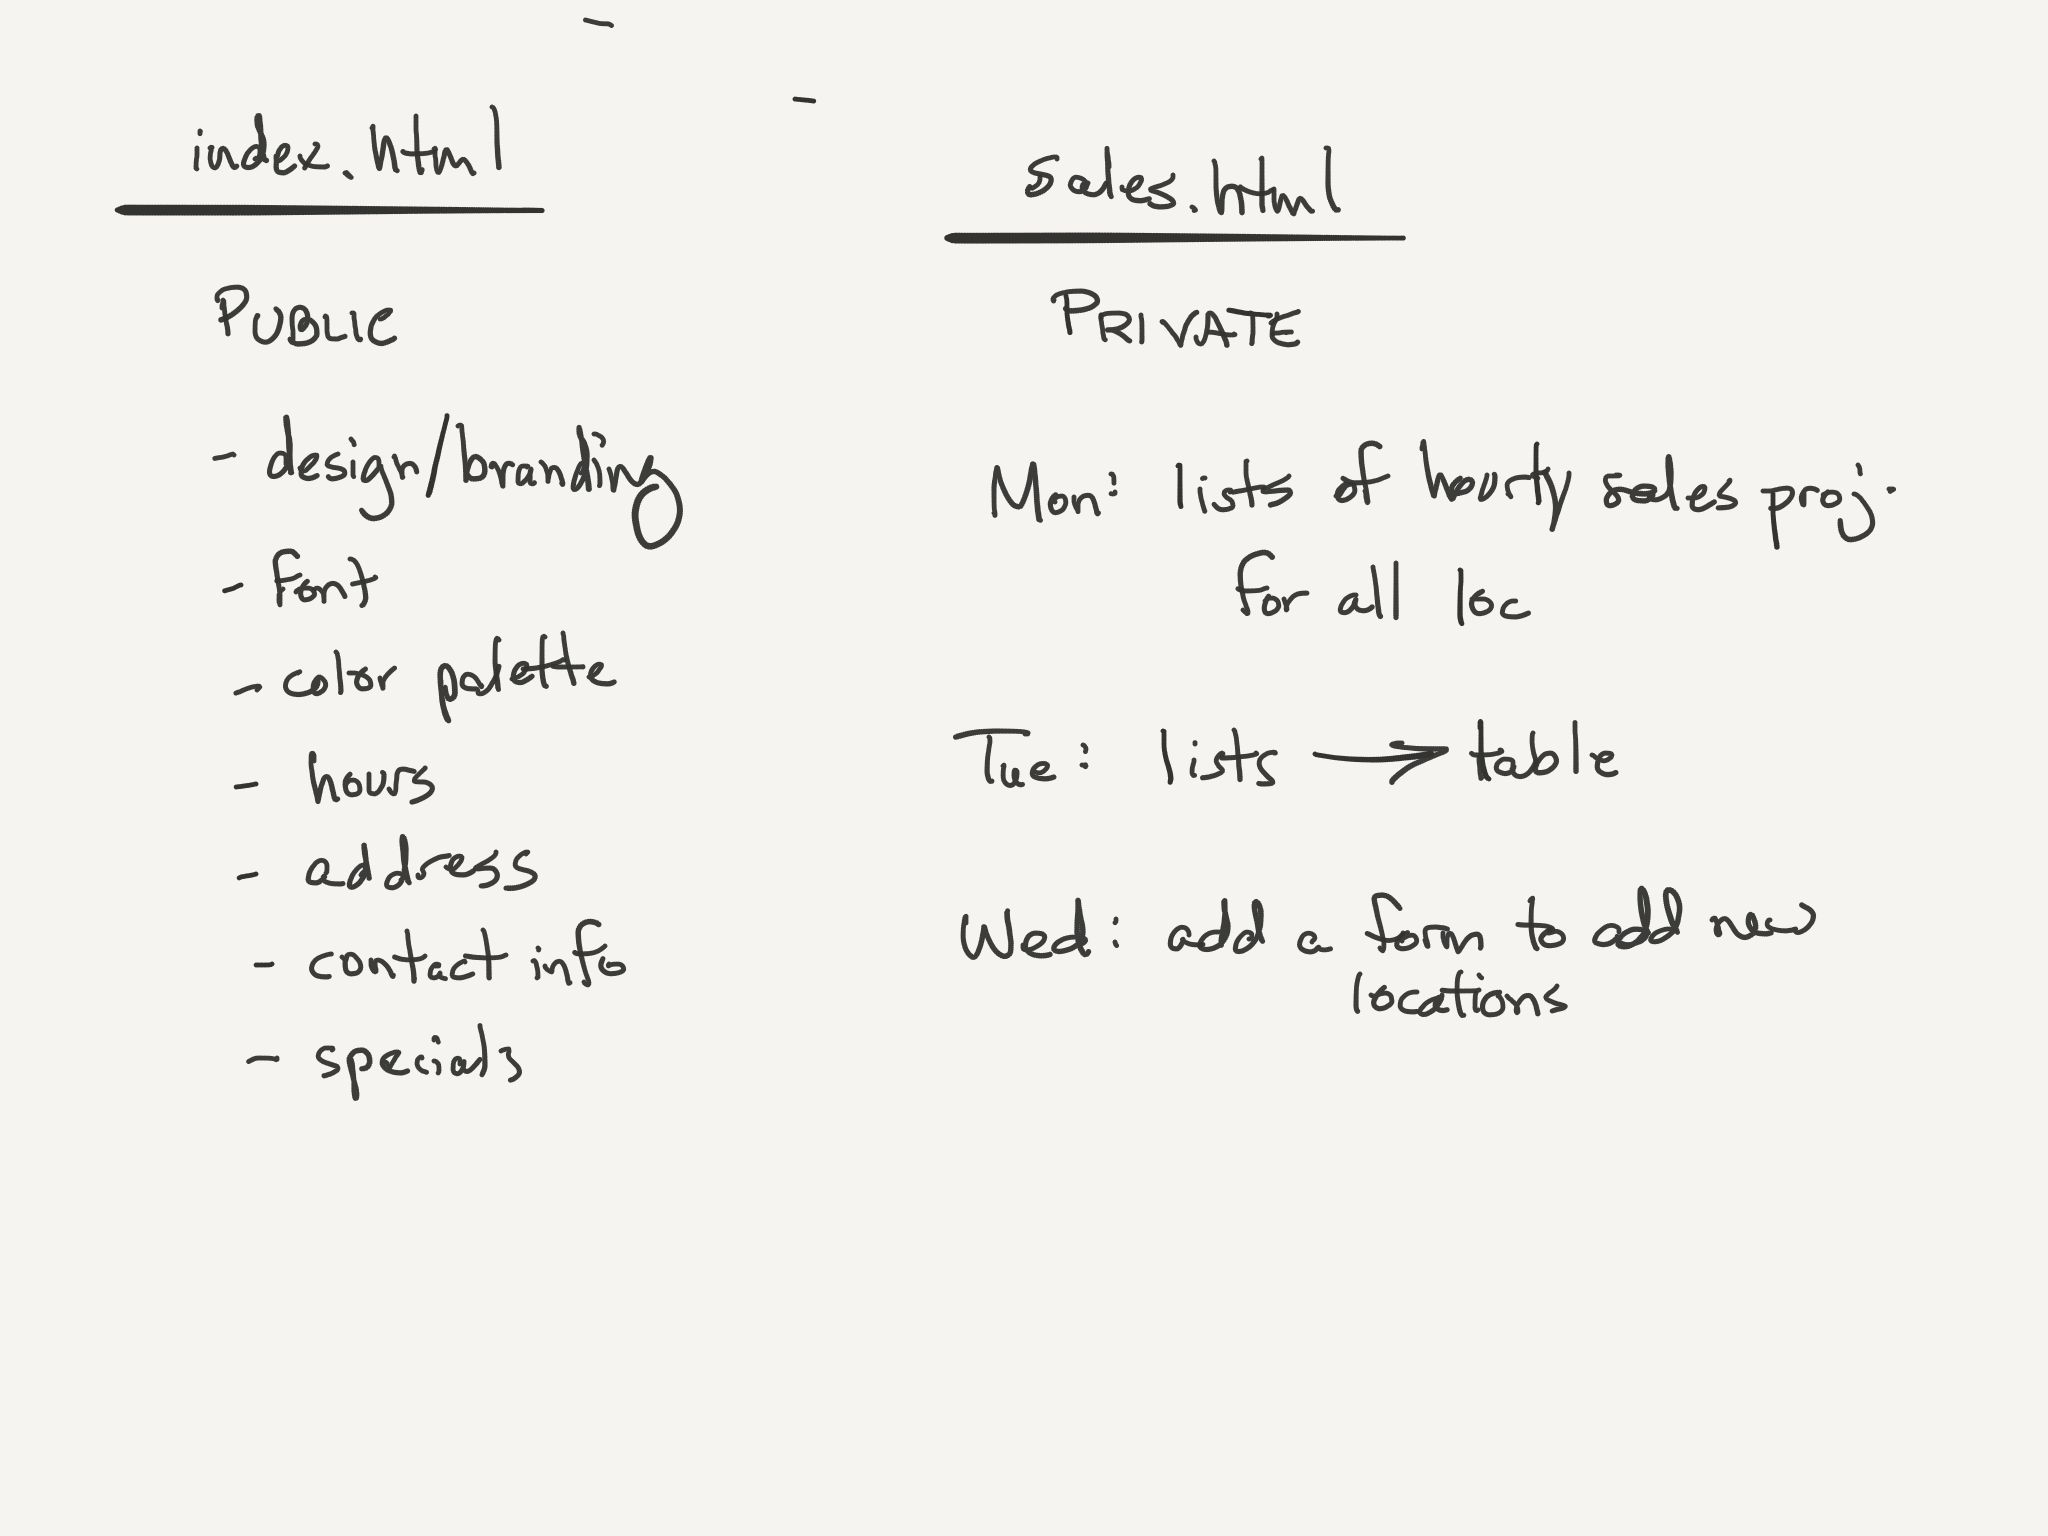 index.html
PUBLIC
- design/branding
- font
- color palette
- hours
- address
- contact info
- specials
sales.html
PRIVATE
Mon: lists of hourly sales proj.
for all loc
Tue: lists → table
Wed: add a form to add new
locations